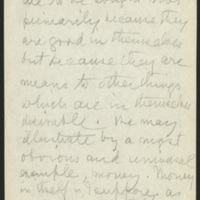 are to be sought not
primarily because they
are good in themselves
but because they are
means to other things
which are in themselves
desirable. We may
illustrate by a most
obvious and universal
example, money. Money
in itself is, I suppose, as